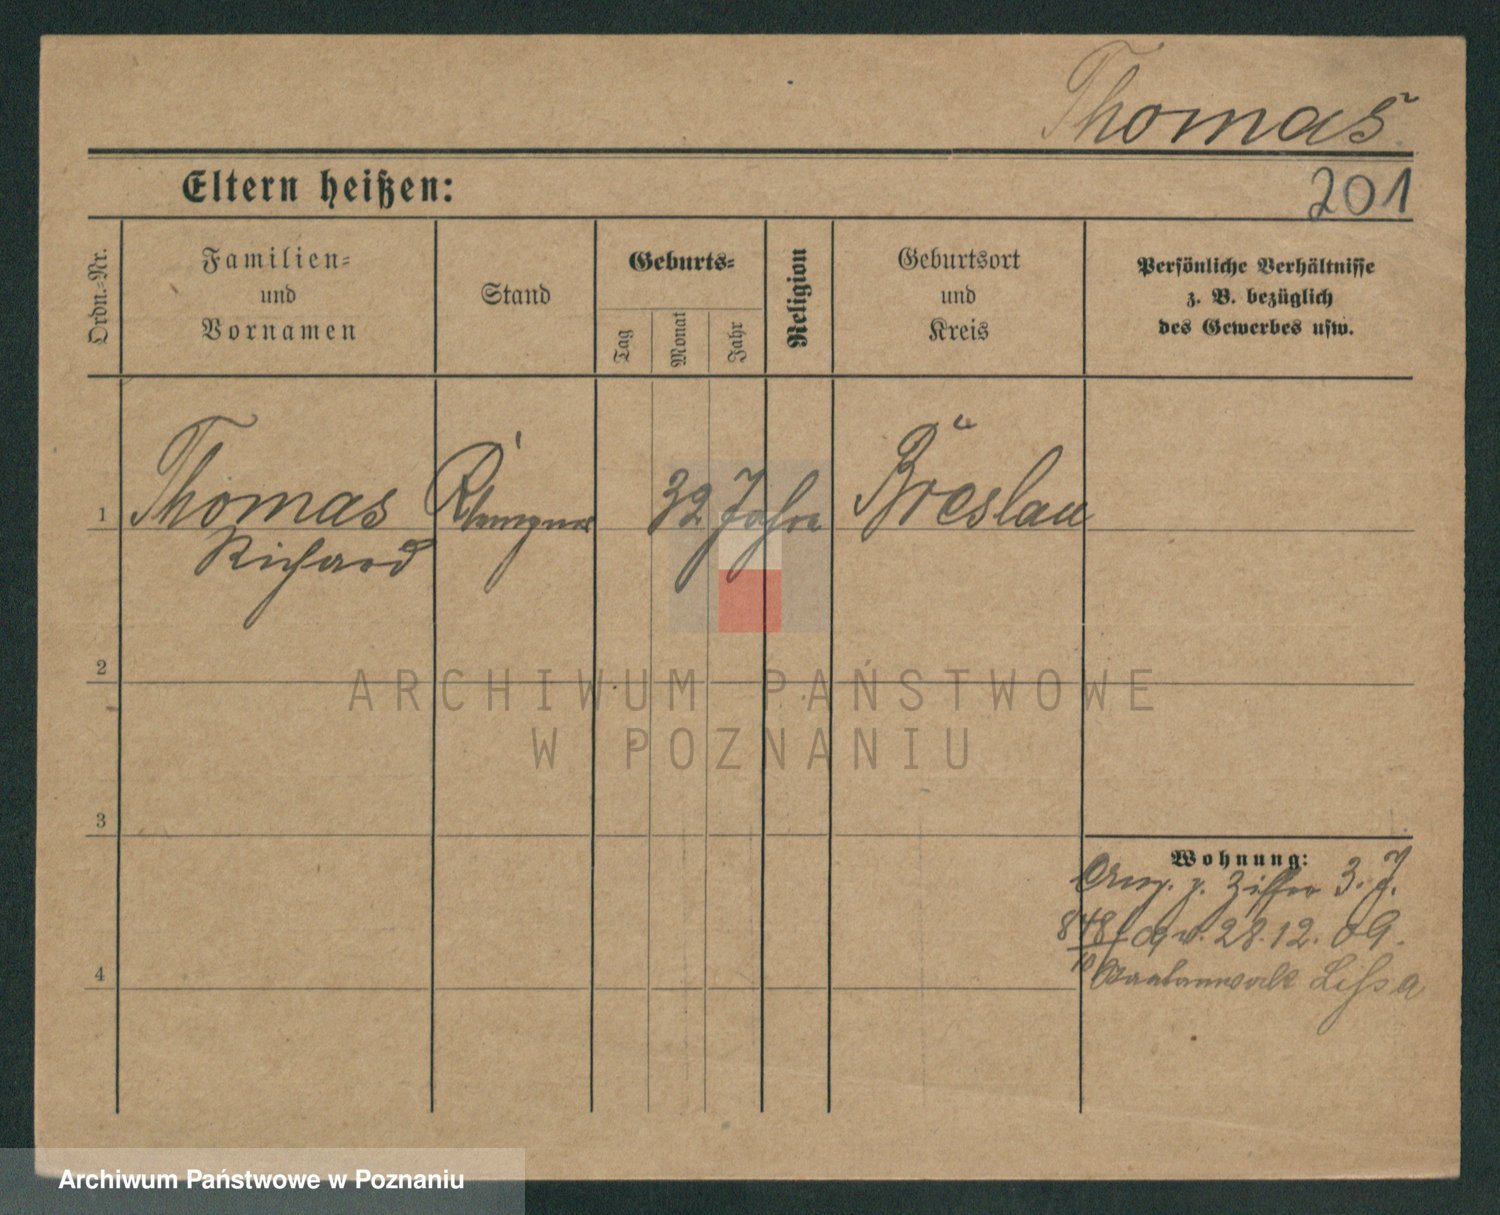 Thomas
201
Eltern heißen:
Ordn.-Nr.
Familien-
und
Vornamen
Stand
Geburts-
Tag
Monat
Jahr
Religion
Geburtsort
und
Kreis
Persönliche Verhältnisse
z. B. bezüglich
des Gewerbes usw.
1 Thomas 32 Jahre Breslau
Richard
2
ARCHIWUM PAŃSTWOWE
W POZNANIU
3
Wohnung:
Ziffer 3. J.
848 09 v. 28.12.09.
10
4 Staatsanwalt Lissa
Archiwum Państwowe w Poznaniu